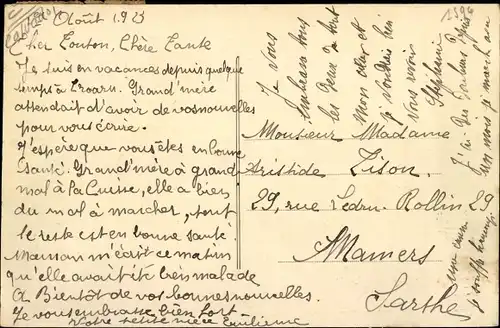 Août 1923
Cher Tonton, Chère Tante
Je suis en vacances depuis quelque
temps à Troarn. Grand'mère
attendait d'avoir de vos nouvelles
pour vous écrire.
J'espère que vous êtes en bonne
santé. Grand'mère à grand
mal à la Cuisse, elle a bien
du mal à marcher, tout
le reste est en bonne santé.
Maman m'écrit ce matin
qu'elle avait été bien malade
A Bientôt de vos bonnes nouvelles.
Je vous embrasse bien fort
Votre petite nièce Emilienne
Monsieur Madame
Aristide Tison
29, rue Ledru-Rollin 29
Mamers
Sarthe
Je vous
embrasse tous
les Deux de tout
mon cœur et
je voudrais bien
vous voir
Stéphanie
J'ai des Douleurs